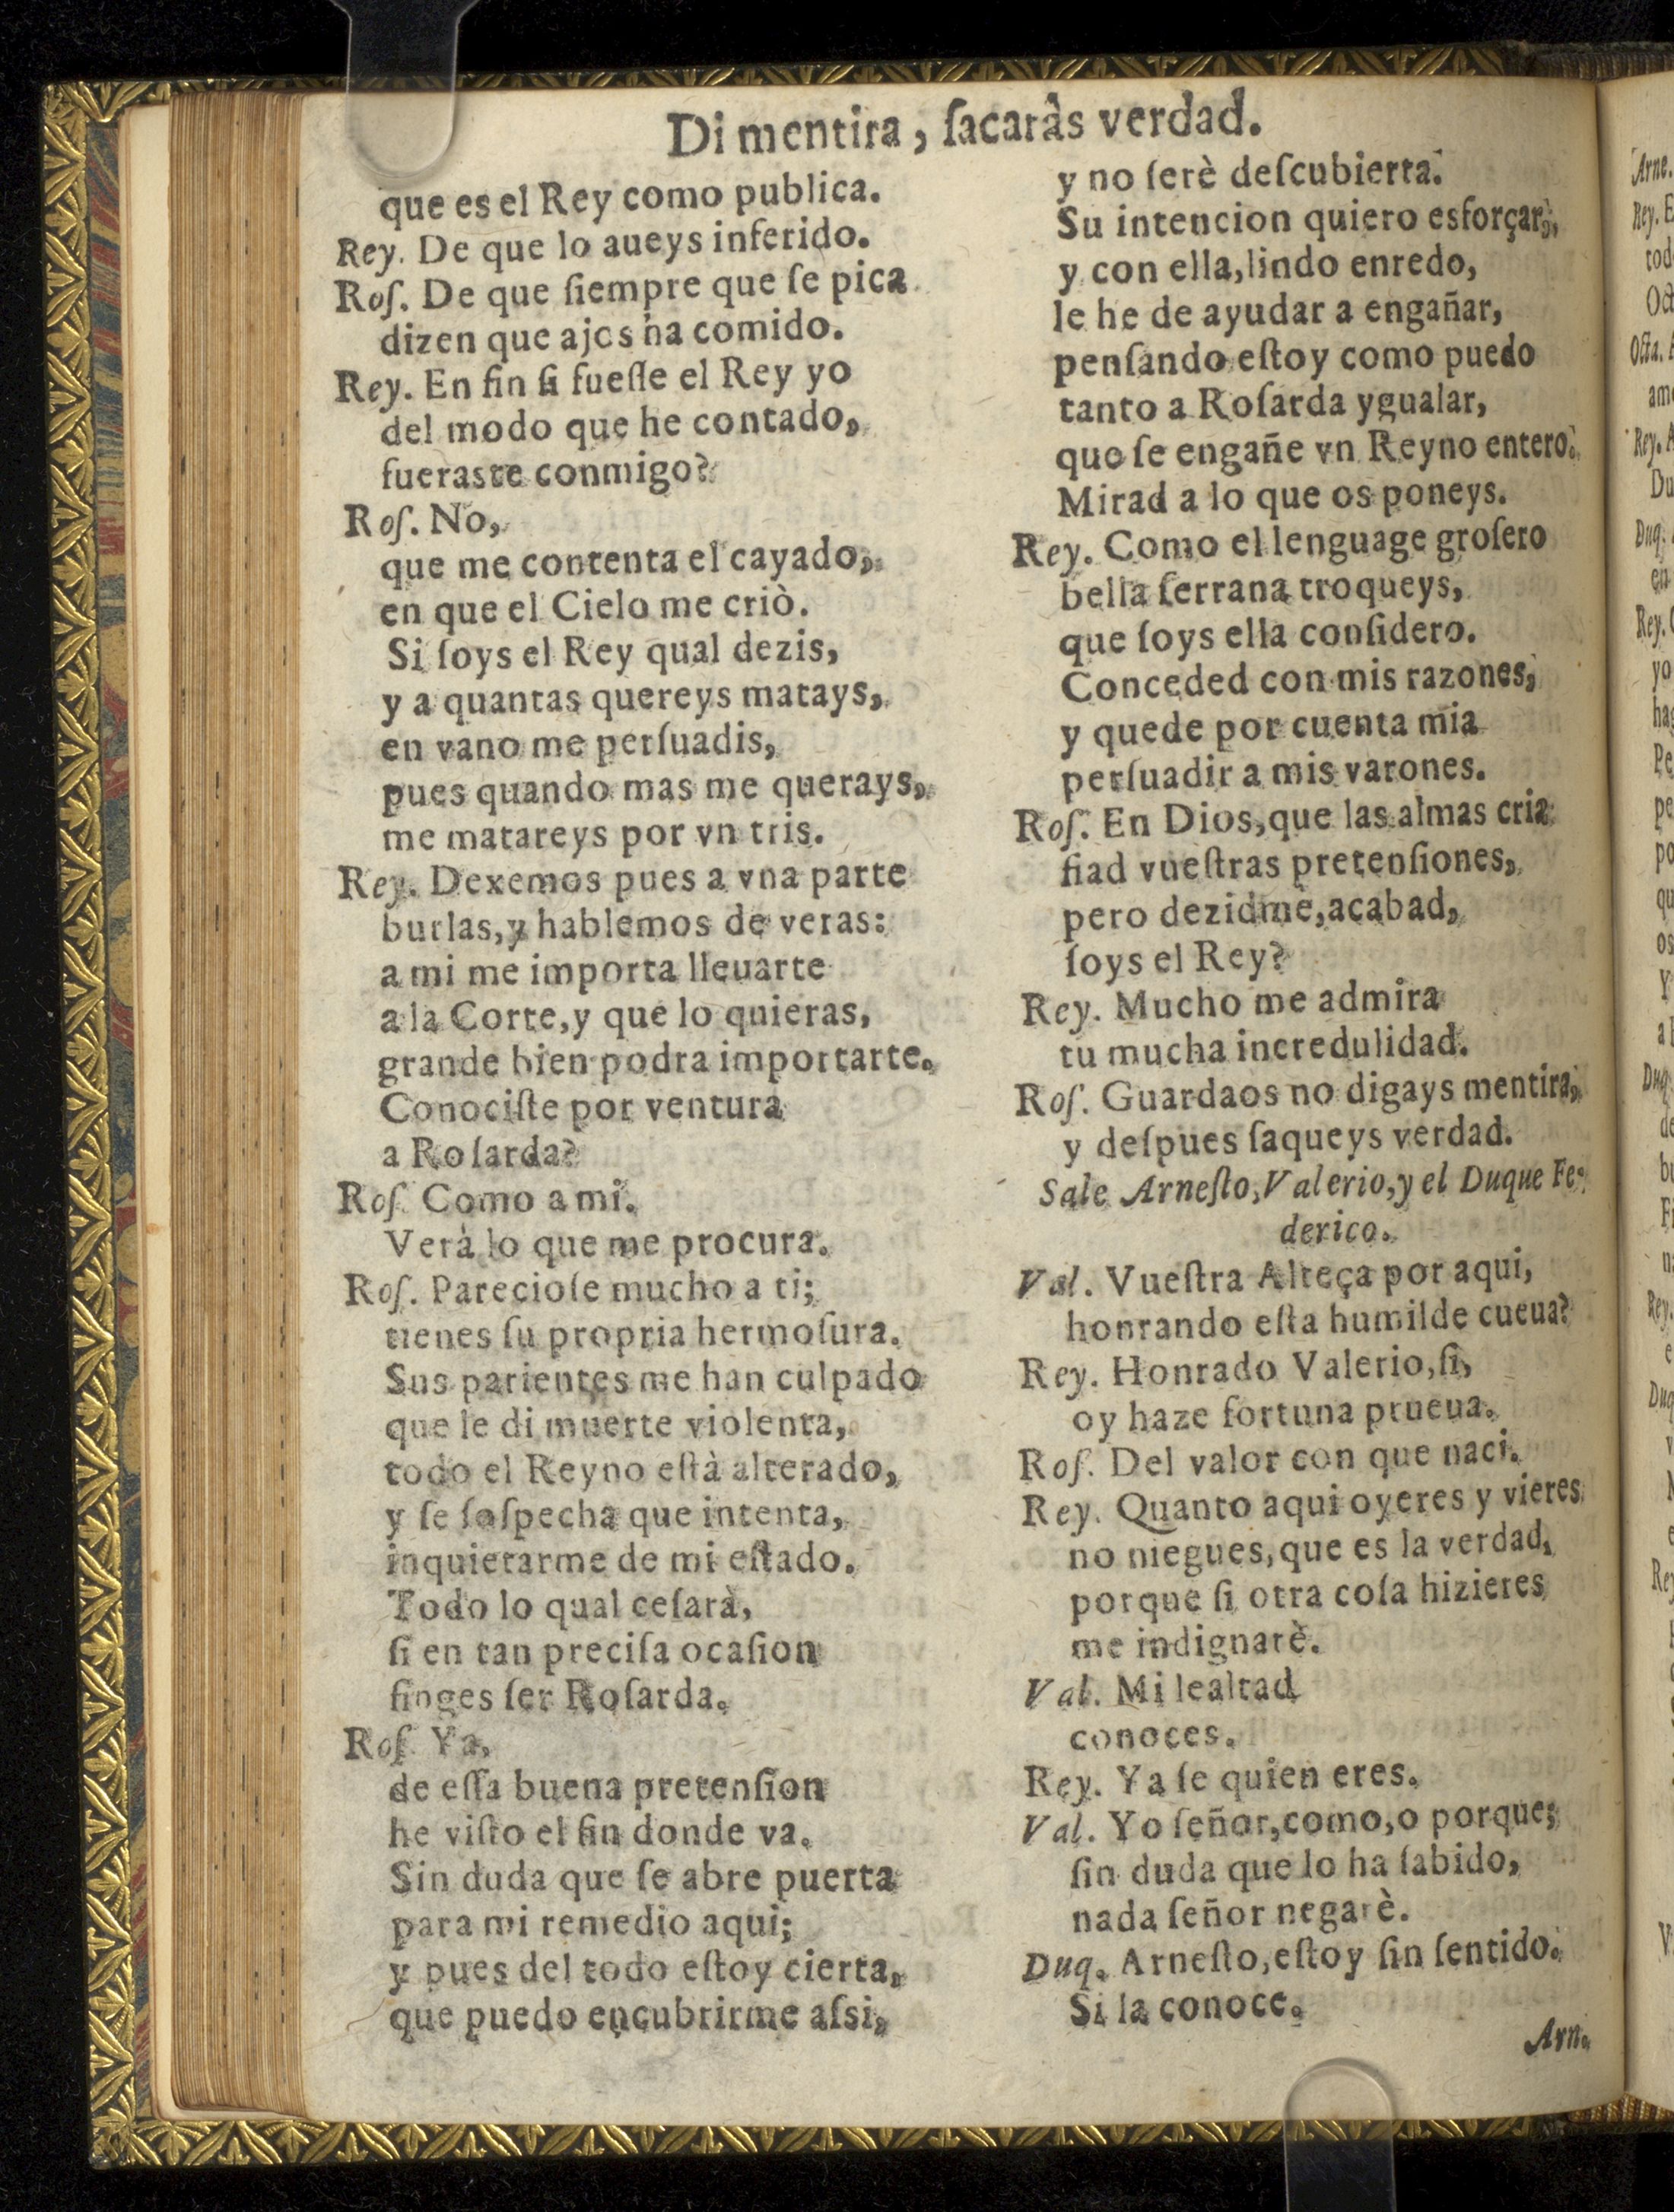 Di mentira, ſacaràs verdad.
que es el Rey como publica.
Rey. De que lo aueys inferido.
Roſ. De que ſiempre que ſe pica
dizen que ajos ha comido.
Rey. En fin ſi fueſſe el Rey yo
del modo que he contado,
fueraste conmigo?
Roſ. No,
que me contenta el cayado,
en que el Cielo me criò.
Si ſoys el Rey qual dezis,
y a quantas quereys matays,
en vano me perſuadis,
pues quando mas me querays,
me matareys por vn tris.
Rey. Dexemos pues a vna parte
burlas, y hablemos de veras:
a mi me importa lleuarte
a la Corte, y que lo quieras,
grande bien podra importarte.
Conociſte por ventura
a Roſarda?
Roſ. Como a mi.
Verà lo que me procura.
Roſ. Pareciole mucho a ti;
tienes ſu propria hermoſura.
Sus parientes me han culpado
que le di muerte violenta,
todo el Reyno eſtà alterado,
y ſe ſoſpecha que intenta,
inquietarme de mi eſtado.
Todo lo qual ceſarà,
ſi en tan preciſa ocaſion
finges ſer Roſarda.
Roſ. Ya,
de eſſa buena pretenſion
he viſto el fin donde va.
Sin duda que ſe abre puerta
para mi remedio aqui;
y pues del todo eſtoy cierta,
que puedo encubrirme aſsi,
y no ſerè deſcubierta.
Su intencion quiero esforçar,
y con ella, lindo enredo,
le he de ayudar a engañar,
penſando eſtoy como puedo
tanto a Roſarda ygualar,
que ſe engañe vn Reyno entero.
Mirad a lo que os poneys.
Rey. Como el lenguage groſero
bella ſerrana troqueys,
que ſoys ella conſidero.
Conceded con mis razones,
y quede por cuenta mia
perſuadir a mis varones.
Roſ. En Dios, que las almas cria
fiad vueſtras pretenſiones,
pero dezidme, acabad,
ſoys el Rey?
Rey. Mucho me admira
tu mucha incredulidad.
Roſ. Guardaos no digays mentira,
y deſpues ſaqueys verdad.
Sale Arneſto, Valerio, y el Duque Fe-
derico.
Val. Vueſtra Alteça por aqui,
honrando eſta humilde cueua?
Rey. Honrado Valerio, ſi,
oy haze fortuna prueua.
Roſ. Del valor con que naci.
Rey. Quanto aqui oyeres y vieres
no niegues, que es la verdad,
porque ſi otra coſa hizieres
me indignarè.
Val. Mi lealtad
conoces.
Rey. Ya ſe quien eres.
Val. Yo ſeñor, como, o porque;
ſin duda que lo ha ſabido,
nada ſeñor negarè.
Duq. Arneſto, eſtoy ſin ſentido.
Si la conoce.
Arn.
Arne.
Rey. E
tod
Oct
Octa.
am
Rey. A
Du
Duq.
en
Rey.
yo